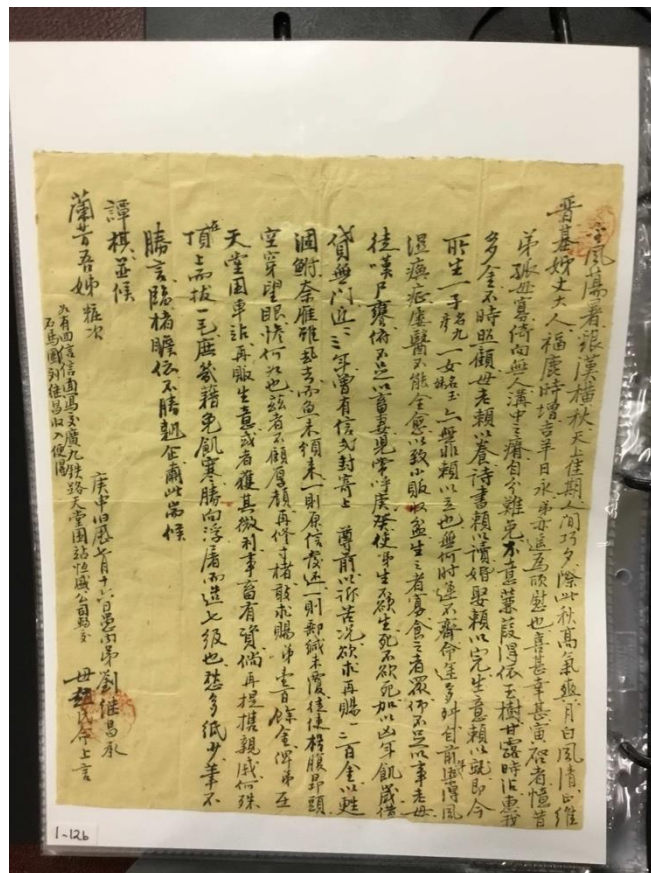 金風蕩暑銀漢橫秋天上佳期人間巧夕際此秋高氣爽月白風清正維
晋基姊丈大人福履時增吉羊日永弟亦遙為欣慰也喜甚幸甚寅啓者憶昔
弟孤母寡倚向無人溝中之瘠自分難免不意蒹葭得依玉樹甘露時沾惠我
多金不時照顧母老賴以養詩書賴以讀婚娶賴以完生意賴以就即今
所生一子名九一女名玉亦無非賴以立也無何時運不齊命途多舛自前年得風
濕痹症屢醫不能全愈以致小販收盤生之者寡食之者眾仰不足以事老母
徒嘆尸饔俯不足以畜妻兒常呼庚癸使弟生不欲生死不欲死加以凶年飢歲借
貸無門近二三年曾有信弍封寄上尊前以訴苦况欲求再賜一二百金以甦
涸鮒奈雁雖刼去而魚未領來一則原信發还一則郵緘未覆徒使枵腹昂頭
空穿望眼惨何如也兹者不顧厚顏再修寸楮敢求賜弟壹百餘金俾弟在
天堂围車站再販生意或者獲其微利事畜有資倘再提携親戚何殊
在頂上而拔一毛庶幾藉免飢寒勝向浮屠而造七級也愁多紙少筆不
勝言臨楮瞻依不勝翹企肅此耑候
譚棋並候
蘭芳吾姊粧次
如有回音信適馬交廣九鉄路天堂围站恒盛公司轉交
石馬國列继昌收入便得
庚申旧历七月十六日愚内弟劉继昌承
母趙氏命上言
1-12b